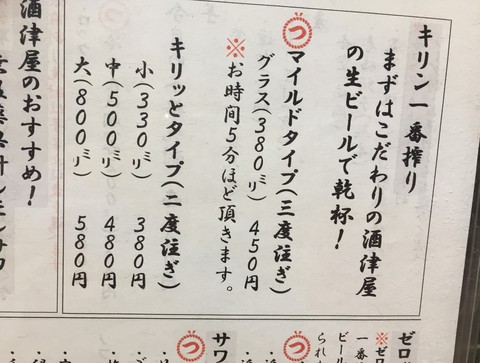 キリン一番搾り
まずはこだわりの酒津屋
の生ビールで乾杯！
つ マイルドタイプ（三度注ぎ）
グラス（380ミリ） 450円
※お時間5分ほど頂きます。
キリッとタイプ（二度注ぎ）
小（330ミリ） 380円
中（500ミリ） 480円
大（800ミリ） 580円
酒津屋のおすすめ！
ゼロ
※ゼロ
一番
ビール
られ
つ
サワ
つ